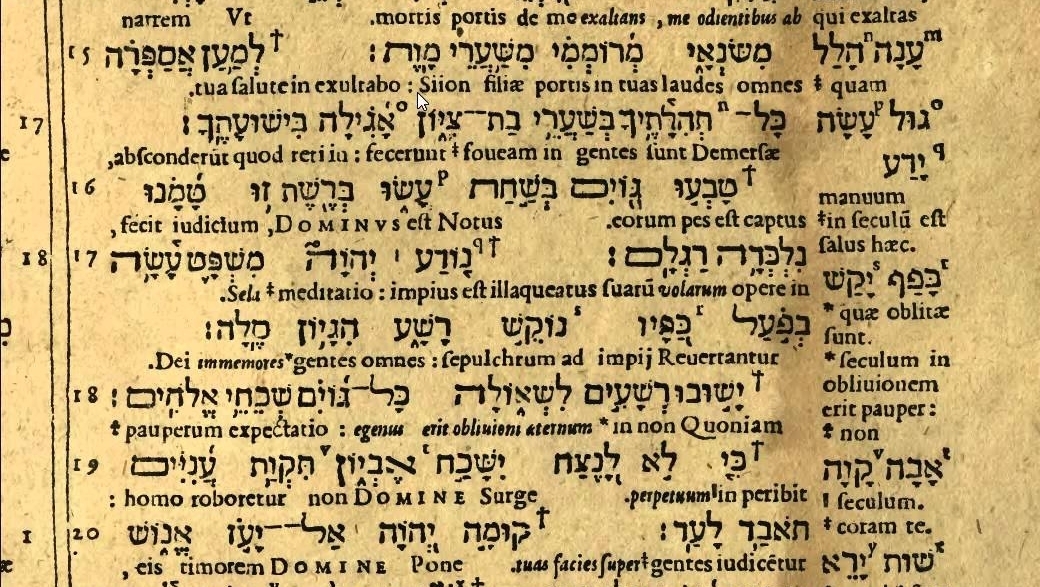 narrem Vt .mortis portis de me exaltans , me odientibus ab
15 מִשֹּׂנְאָי מְרוֹמְמִי מִשַּׁעֲרֵי מָוֶת: †לְמַעַן אֲסַפְּרָה
.tua salute in exultabo : Siion filiæ portis in tuas laudes omnes
כָּל־ ⁿתְּהִלָּתֶיךָ בְּשַׁעֲרֵי בַת־צִיּוֹן °אָגִילָה בִּישׁוּעָתֶךָ:
,absconderūt quod reti in : fecerunt ‡ foueam in gentes sunt Demersæ
16 †טָבְעוּ גוֹיִם בְּשַׁחַת ᵖעָשׂוּ בְּרֶשֶׁת זוּ טָמָנוּ
,fecit iudicium ,DOMINVS est Notus .eorum pes est captus
17 נִלְכְּדָה רַגְלָם: †ᑫנוֹדַע יְהוָה מִשְׁפָּט עָשָׂה
.Sela ‡ meditatio : impius est illaqueatus suarū volarum opere in
בְּפֹעַל ʳכַּפָּיו ˢנוֹקֵשׁ רָשָׁע הִגָּיוֹן סֶלָה:
.Dei immemores *gentes omnes : sepulchrum ad impij Reuertantur
18 †יָשׁוּבוּ רְשָׁעִים לִשְׁאוֹלָה כָּל־גּוֹיִם שְׁכֵחֵי אֱלֹהִים:
‡ pauperum expectatio : egenus erit obliuioni æternum * in non Quoniam
19 †כִּי לֹא לָנֶצַח יִשָּׁכַח ᵗאֶבְיוֹן ᵛתִּקְוַת עֲנִיִּים
: homo roboretur non DOMINE Surge .perpetuum in peribit
20 תֹּאבַד לָעַד: †קוּמָה יְהוָה אַל־יָעֹז אֱנוֹשׁ
, eis timorem DOMINE Pone .tuas facies super ‡ gentes iudicētur
qui exaltas
ᵐעָנָה ⁿהָלַל
‡ quam
°גּוּל ᵖעָשָׂה
ᑫיָדַע
manuum
‡in seculū est
salus hæc.
ʳכָּפַף ˢיָקַשׁ
* quæ oblitæ
sunt.
* seculum in
obliuionem
erit pauper:
‡ non
ᵗאָבָה ᵛקָוָה
seculum.
‡ coram te.
ˣשׁוּת ʸיָרֵא
17
18
1